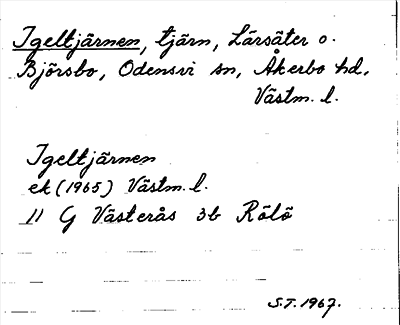 Igeltjärnen, tjärn, Lársäter o.
Björsbo, Odensvi sn, Åkerbo hd,
Västm. l.
Igeltjärnen
ek (1965) Västm. l.
11 G Västerås 3b Rölö
S.T. 1967.